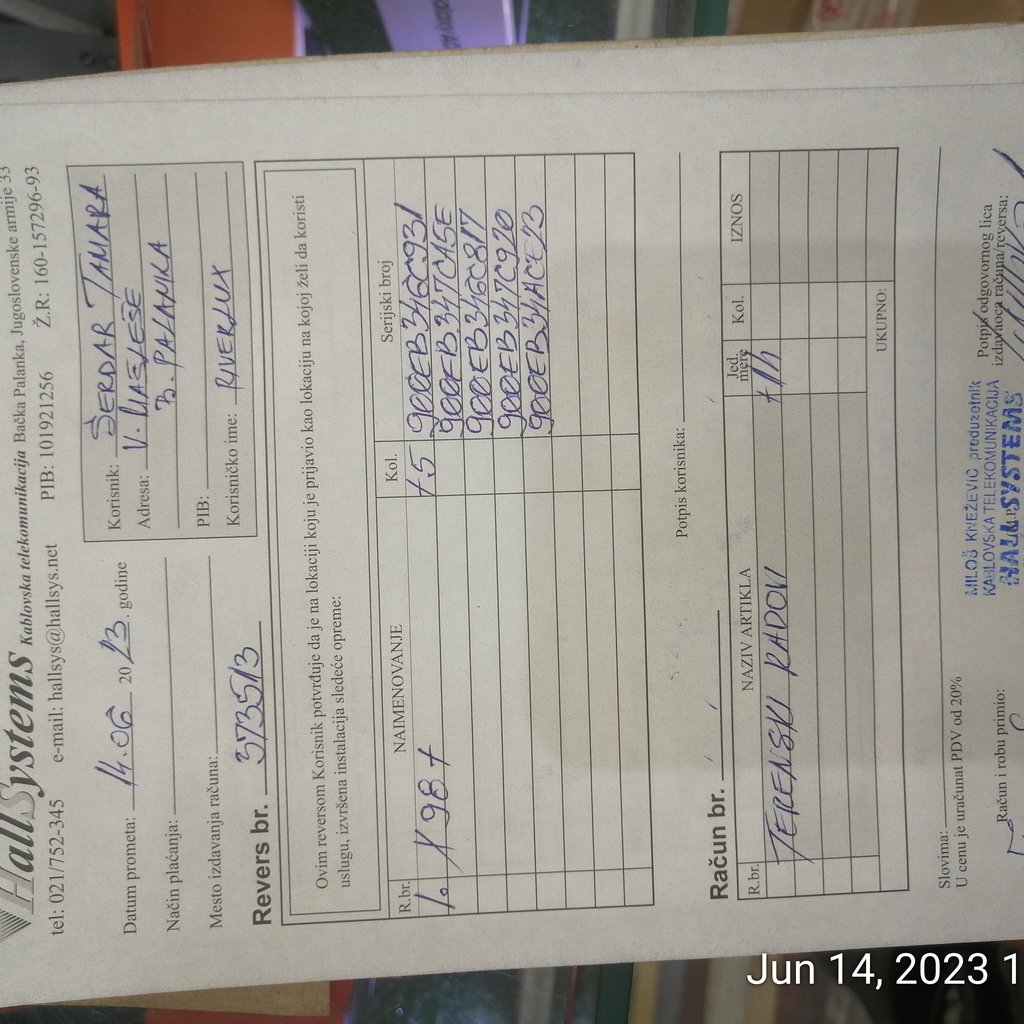 HallSystems Kablovska telekomunikacija Bačka Palanka, Jugoslovenske armije 33
tel: 021/752-345 e-mail: hallsys@hallsys.net PIB: 101921256 Ž.R: 160-157296-93
Datum prometa: 14.06 2023. godine
Način plaćanja:
Mesto izdavanja računa:
Korisnik: ŠERDAR TAMARA
Adresa: V. VLAJIĆ
B. PALANKA
PIB:
Korisničko ime:
Revers br. 373513
Ovim reversom Korisnik potvrđuje da je na lokaciji koju je prijavio kao lokaciju na kojoj želi da koristi
uslugu, izvršena instalacija sledeće opreme:
R.br. NAIMENOVANJE Kol. Serijski broj
1. X98+ 5 900EB346C931
900EB347C45E
900EB346C817
900EB347C920
900EB34ACE23
Potpis korisnika:
Račun br.
R.br. NAZIV ARTIKLA Jed. mere Kol. IZNOS
TERENSKI RADOVI
UKUPNO:
Slovima:
U cenu je uračunat PDV od 20%
Račun i robu primio:
MILOŠ KNEŽEVIĆ preduzetnik
KABLOVSKA TELEKOMUNIKACIJA
HALL SYSTEMS
Potpis odgovornog lica
izdavaoca računa/reversa:
Jun 14, 2023 1